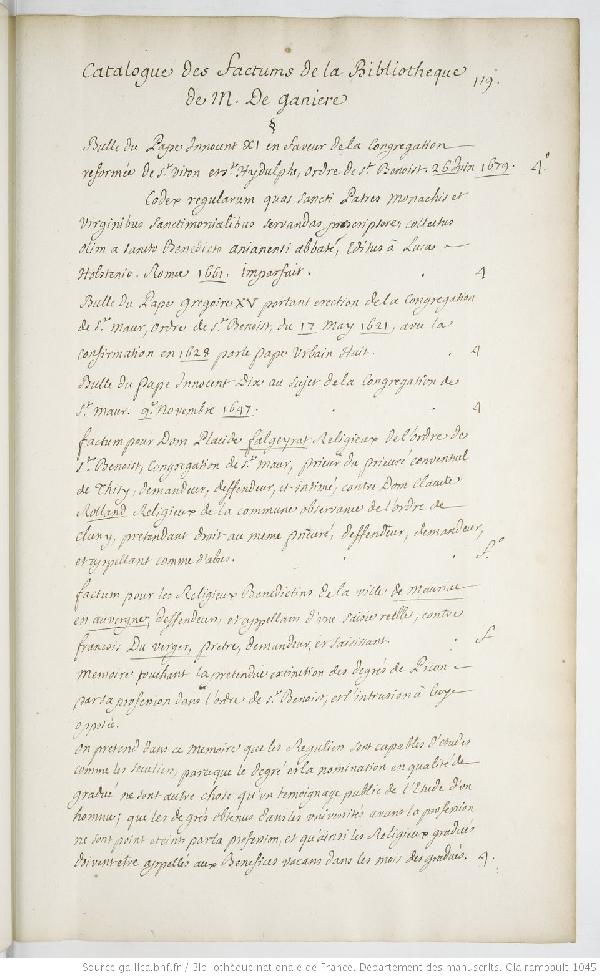 Catalogue des factums de la Bibliotheque
119.
de M. De ganiere
§
Bulle du Pape Innocent XI en faveur de la Congregation
reformée de St. Viton et St. Hydulphe, ordre de St. Benoist. 26 Juin 1679. 4°
Codex regularum quas sancti Patres monachis et
Virginibus sanctimonialibus servandas prescripsere, collectus
olim a sancto Benedicto anianensi abbate, Editus à Lucas
Holstenio. Roma 1661. Imparfait. . 4
Bulle du Pape gregoire XV portant erection de la Congregation
de St. Maur, ordre de St. Benoist, du 17 May 1621, avec la
confirmation en 1628 par le pape Urbain Huit. . 4
Bulle du Pape Innocent Dix au sujet de la Congregation de
St. Maur. 9e Novembre 1647. . . 4
factum pour Dom Placide falgeyrat Religieux de l'ordre de
St. Benoist, Congregation de St. Maur, prieur du prieuré conventuel
de Thisy, demandeur, deffendeur, et intimé, contre Dom Claude
Rolland Religieux de la commune observance de l'ordre de
Cluny, pretendant droit au meme prieuré, deffendeur, demandeur,
et appellant comme d'abus. . . f°
factum pour les Religieux Benedictins de la ville de Mauriac
en auvergne, deffendeurs, et appellans d'une saisie reelle, contre
francois Du verger, pretre, demandeur, et saisissant. : f
memoire touchant la pretendue extinction des degrés de
par la profession dans l'ordre de St. Benoist, et l'intrusion à
opposée.
on pretend dans ce memoire que les Reguliers sont capables d'etudes
comme les seculiers, parceque le degré et la nomination en qualité de
gradué ne sont autre chose qu'un temoignage public de l'Etude d'un
homme; que les degrés obtenus dans les universités avant la profession
ne sont point eteints par la profession, et qu'ainsi les Religieux gradués
doivent etre appellés aux Benefices vacans dans les mois des gradués. 4.
Source gallica.bnf.fr / Bibliothèque nationale de France. Département des manuscrits. Clairambault 1045